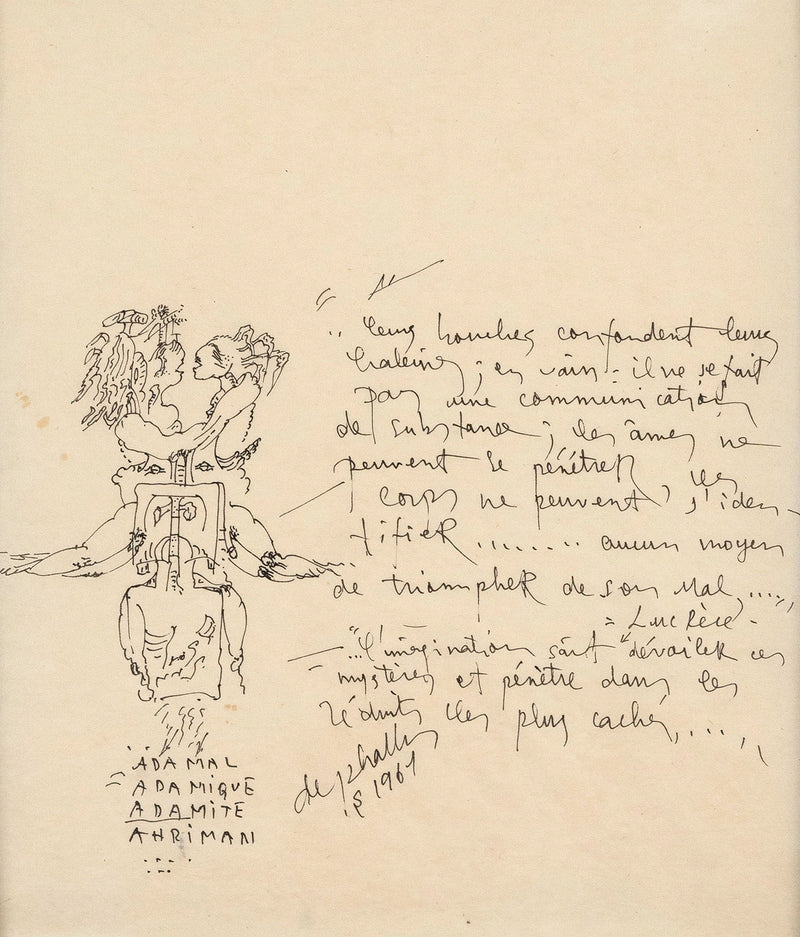 " leurs bouches confondent leurs
haleines ; en vain : il ne se fait
pas une communication
de substance ; les âmes ne
peuvent se pénétrer les
corps ne peuvent s'iden-
tifier ........ aucun moyen
de triompher de son mal ....,
= Lucrèce -
"...L'imagination sait dévoiler ces
mystères et pénètre dans les
réduits les plus cachés, ...
de phallus
1961
ADAMAL
ADAMIQUE
ADAMITE
AHRIMAN